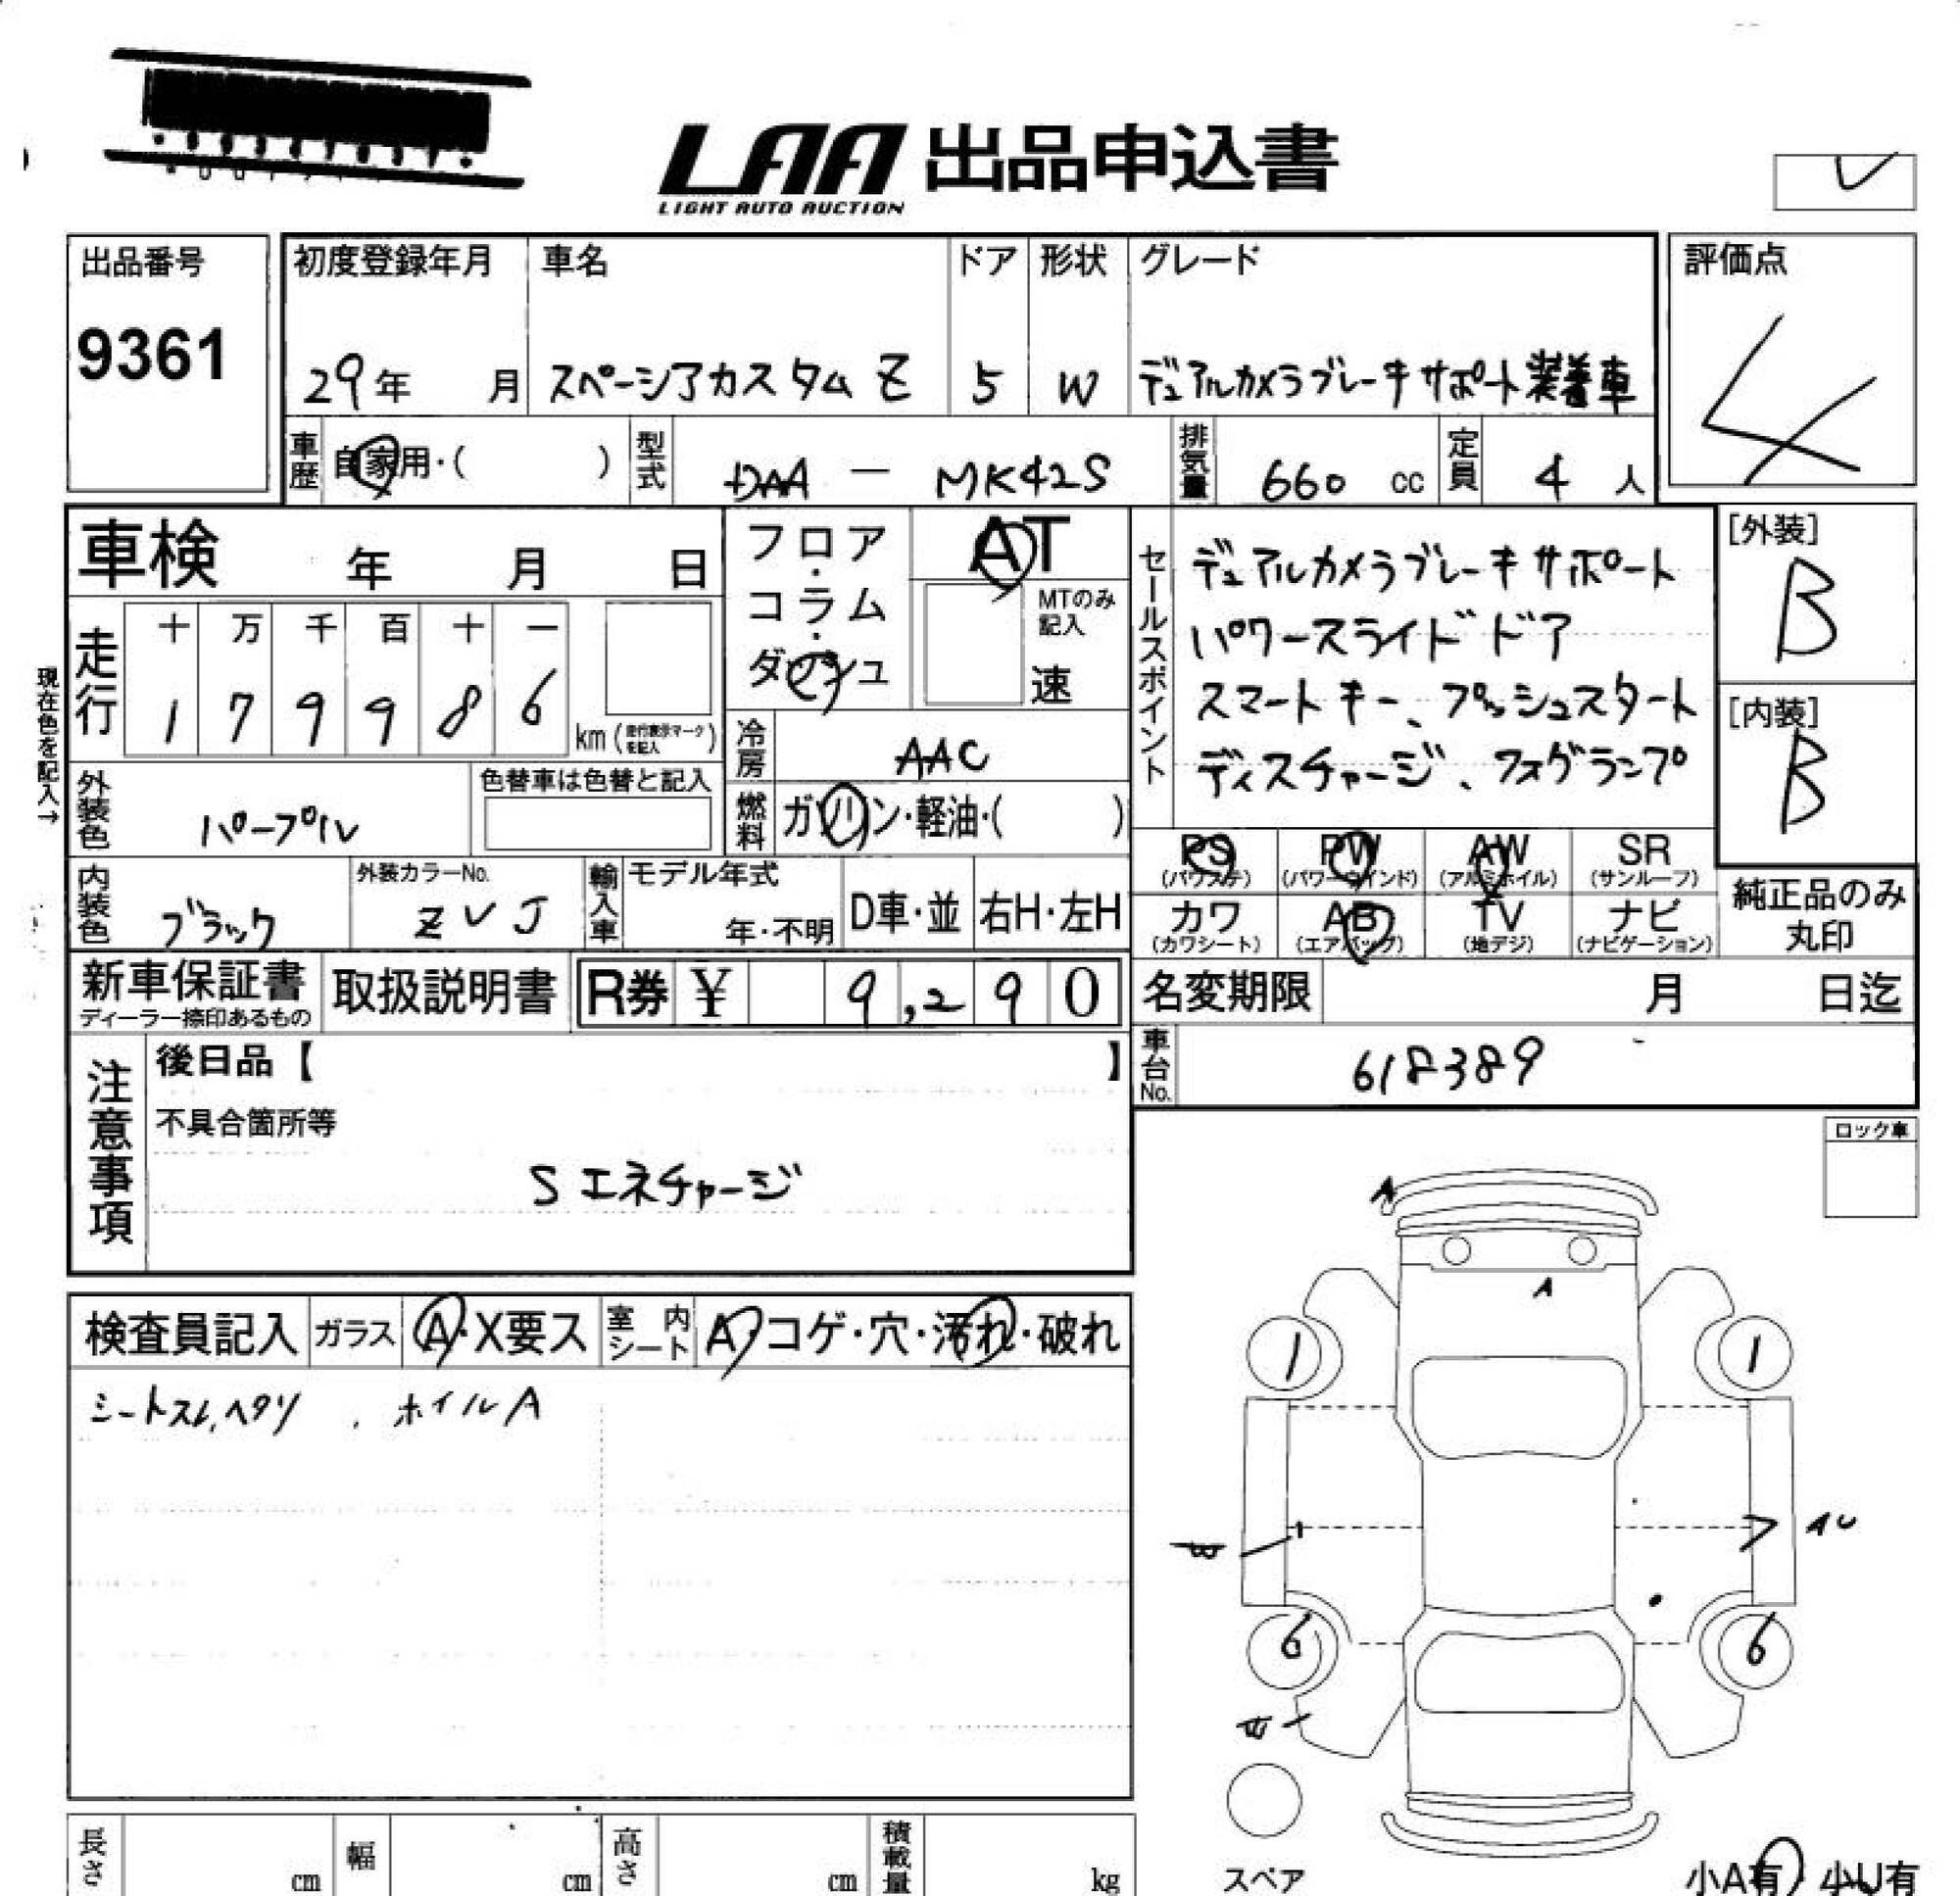 LAA 出品申込書
LIGHT AUTO AUCTION
出品番号
9361
初度登録年月 車名 ドア 形状 グレード
29年 月 スペーシアカスタム Z 5 W デュアルカメラブレーキサポート装着車
評価点
4
車歴 自家用・( ) 型式 DAA - MK42S 排気量 660 cc 定員 4 人
車検 年 月 日
フロア・コラム・ダッシュ
AT
MTのみ記入
速
走行 十 万 千 百 十 一
1 7 9 9 8 6 km (走行表示マークを記入)
現在色を記入→
冷房 AAC
燃料 ガソリン・軽油・( )
セールスポイント
デュアルカメラブレーキサポート
パワースライドドア
スマートキー、プッシュスタート
ディスチャージ、フォグランプ
[外装]
B
[内装]
B
外装色 パープル 色替車は色替と記入
内装色 ブラック 外装カラーNo. ZVJ
輸入車 モデル年式 年・不明 D車・並 右H・左H
PS PW AW SR
(パワステ) (パワーウインド) (アルミホイル) (サンルーフ)
カワ AB TV ナビ
(カワシート) (エアバッグ) (地デジ) (ナビゲーション)
純正品のみ
丸印
新車保証書 取扱説明書 R券 ¥ 9,290
ディーラー捺印あるもの
名変期限 月 日迄
車台No. 618389
注意事項
後日品【 】
不具合箇所等
Sエネチャージ
ロック車
検査員記入 ガラス A・X要ス 室内シート A・コゲ・穴・汚れ・破れ
シートスレ、ヘタリ 、ホイルA
A
A
1 1
AU
6 6
スペア
小A有 小U有
長さ cm 幅 cm 高さ cm 積載量 kg